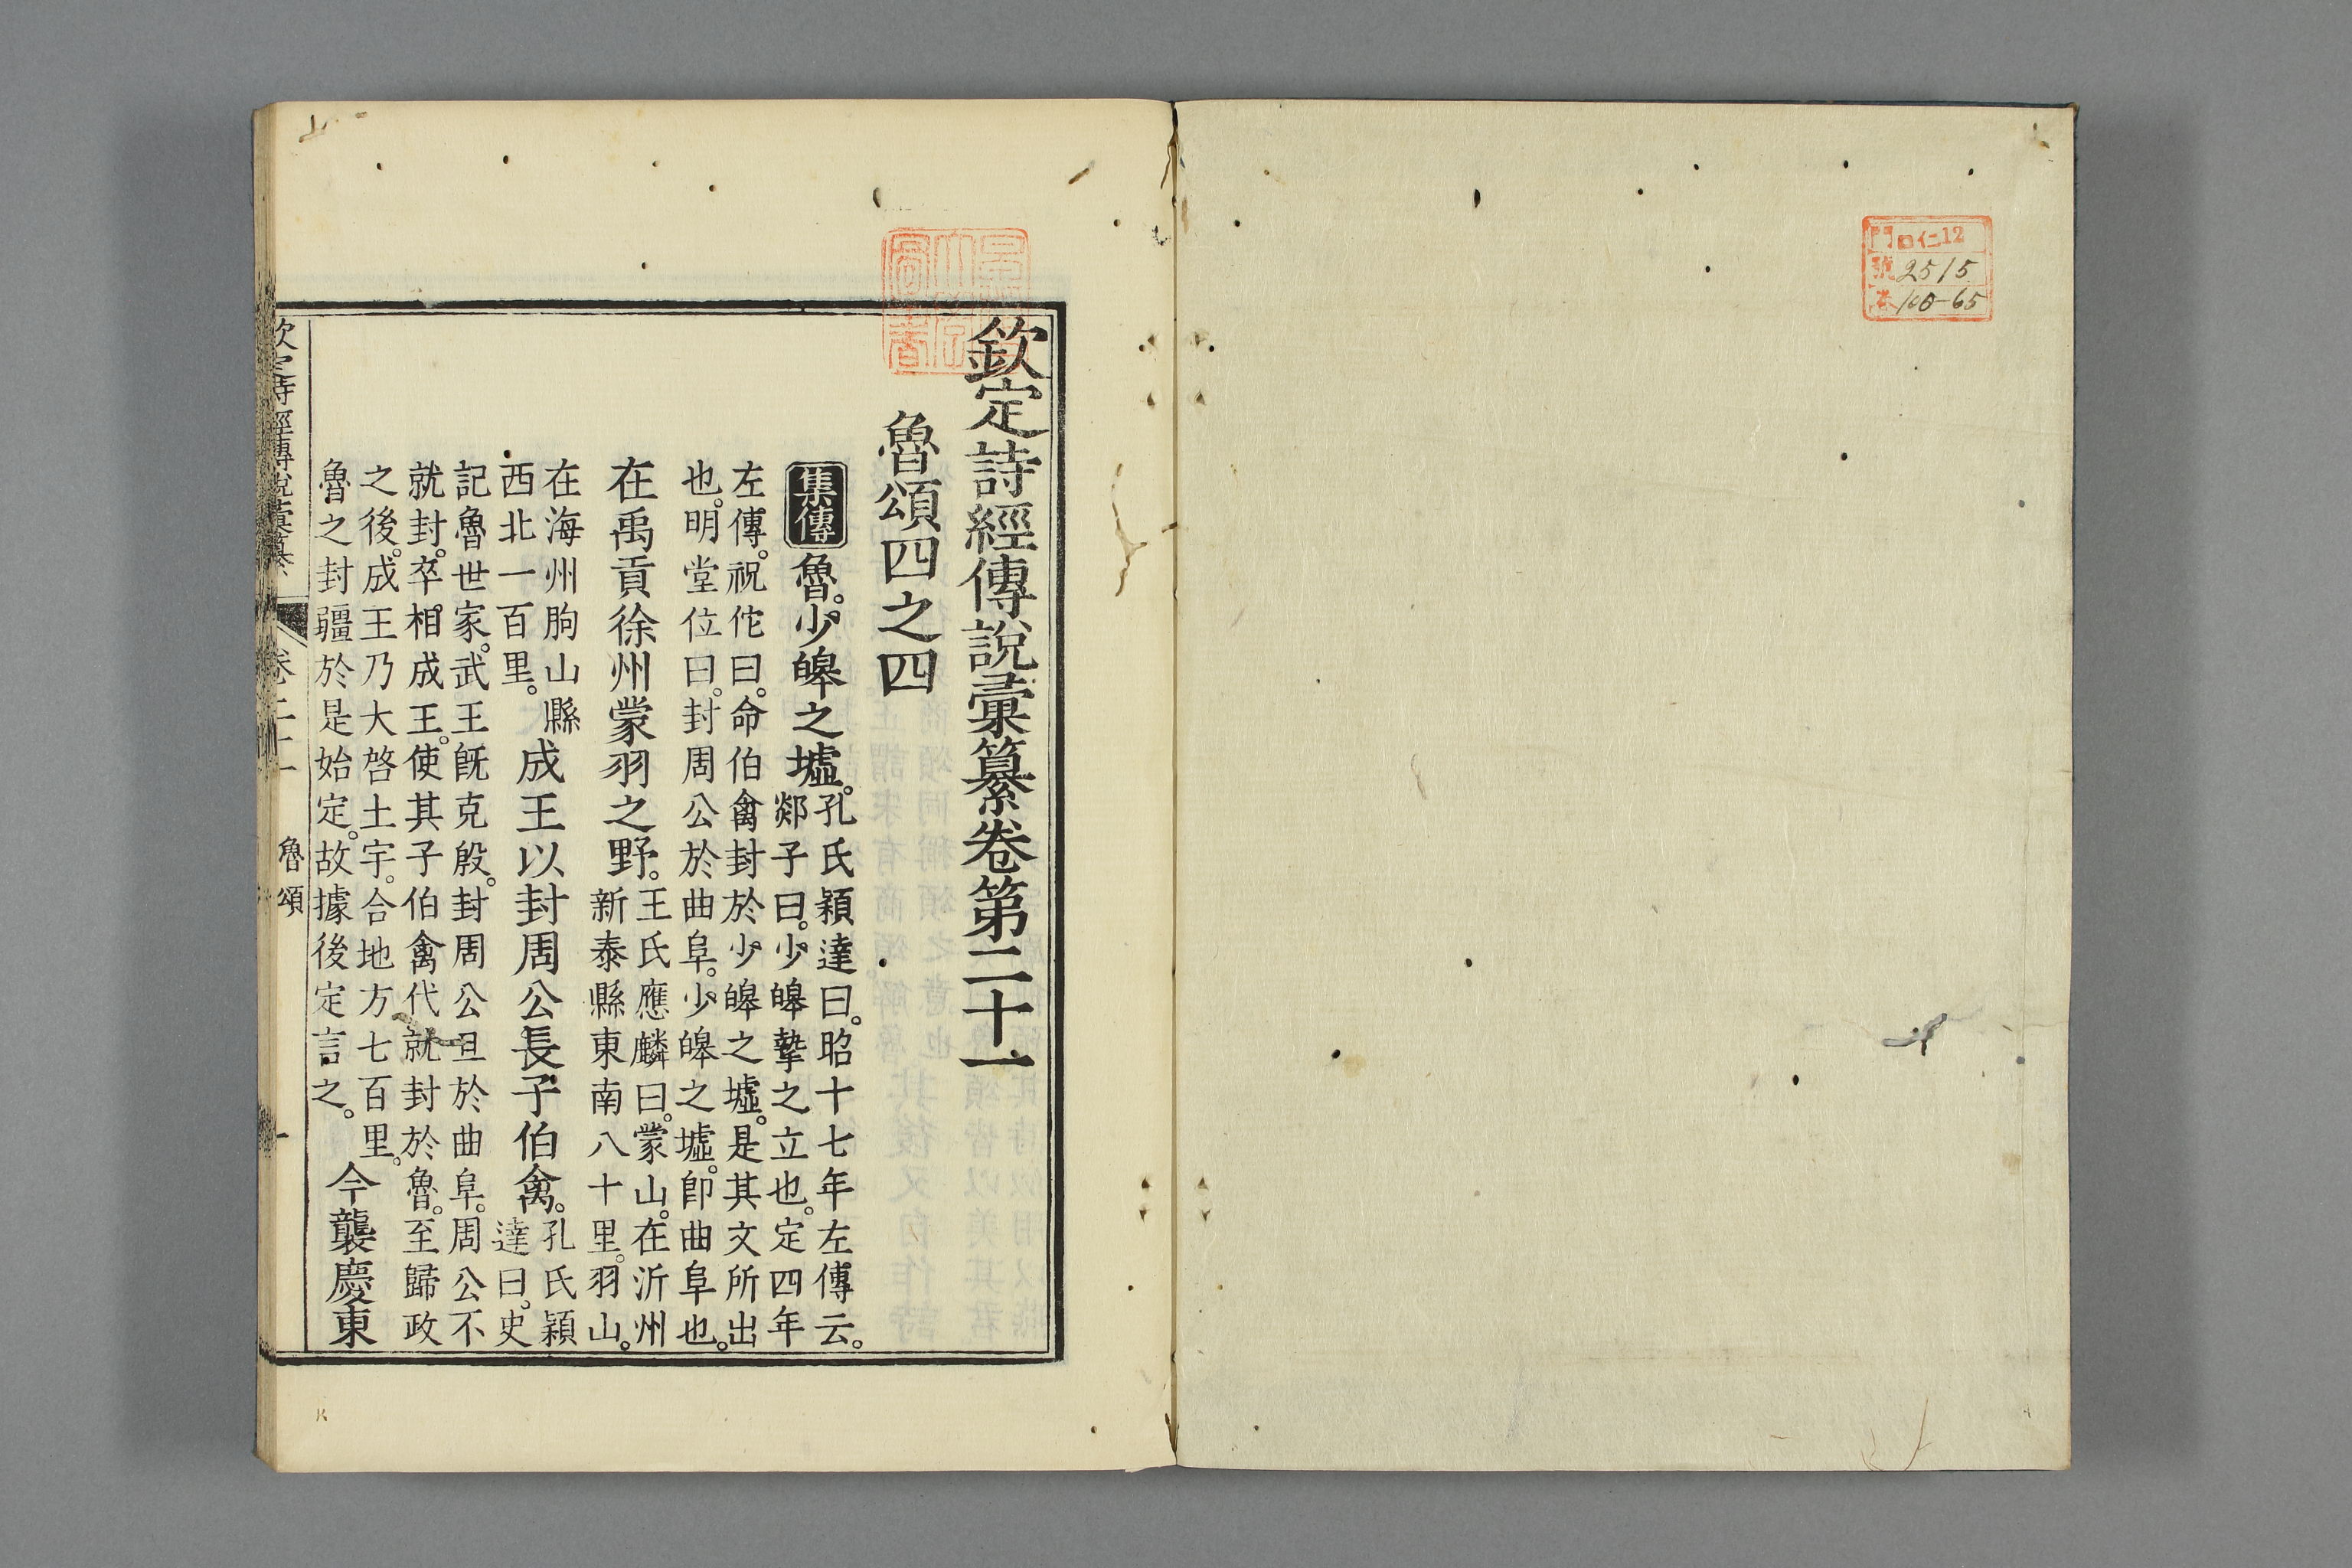 門 ロ仁12
號 2515
卷 100-65
欽定詩經傳說彙纂卷第二十一
魯頌四之四
集傳 魯。少皞之墟。孔氏穎達曰。昭十七年左傳云。
郯子曰。少皞摯之立也。定四年
左傳。祝佗曰。命伯禽封於少皞之墟。是其文所出
也。明堂位曰。封周公於曲阜。少皞之墟。卽曲阜也。
在禹貢徐州蒙羽之野。王氏應麟曰。蒙山。在沂州
新泰縣東南八十里。羽山。
在海州朐山縣
西北一百里。成王以封周公長子伯禽。孔氏穎
達曰。史
記魯世家。武王旣克殷。封周公旦於曲阜。周公不
就封。卒相成王。使其子伯禽代就封於魯。至歸政
之後。成王乃大啓土宇。合地方七百里。
魯之封疆於是始定。故據後定言之。今襲慶東
欽定詩經傳說彙纂 卷二十一 魯頌 一